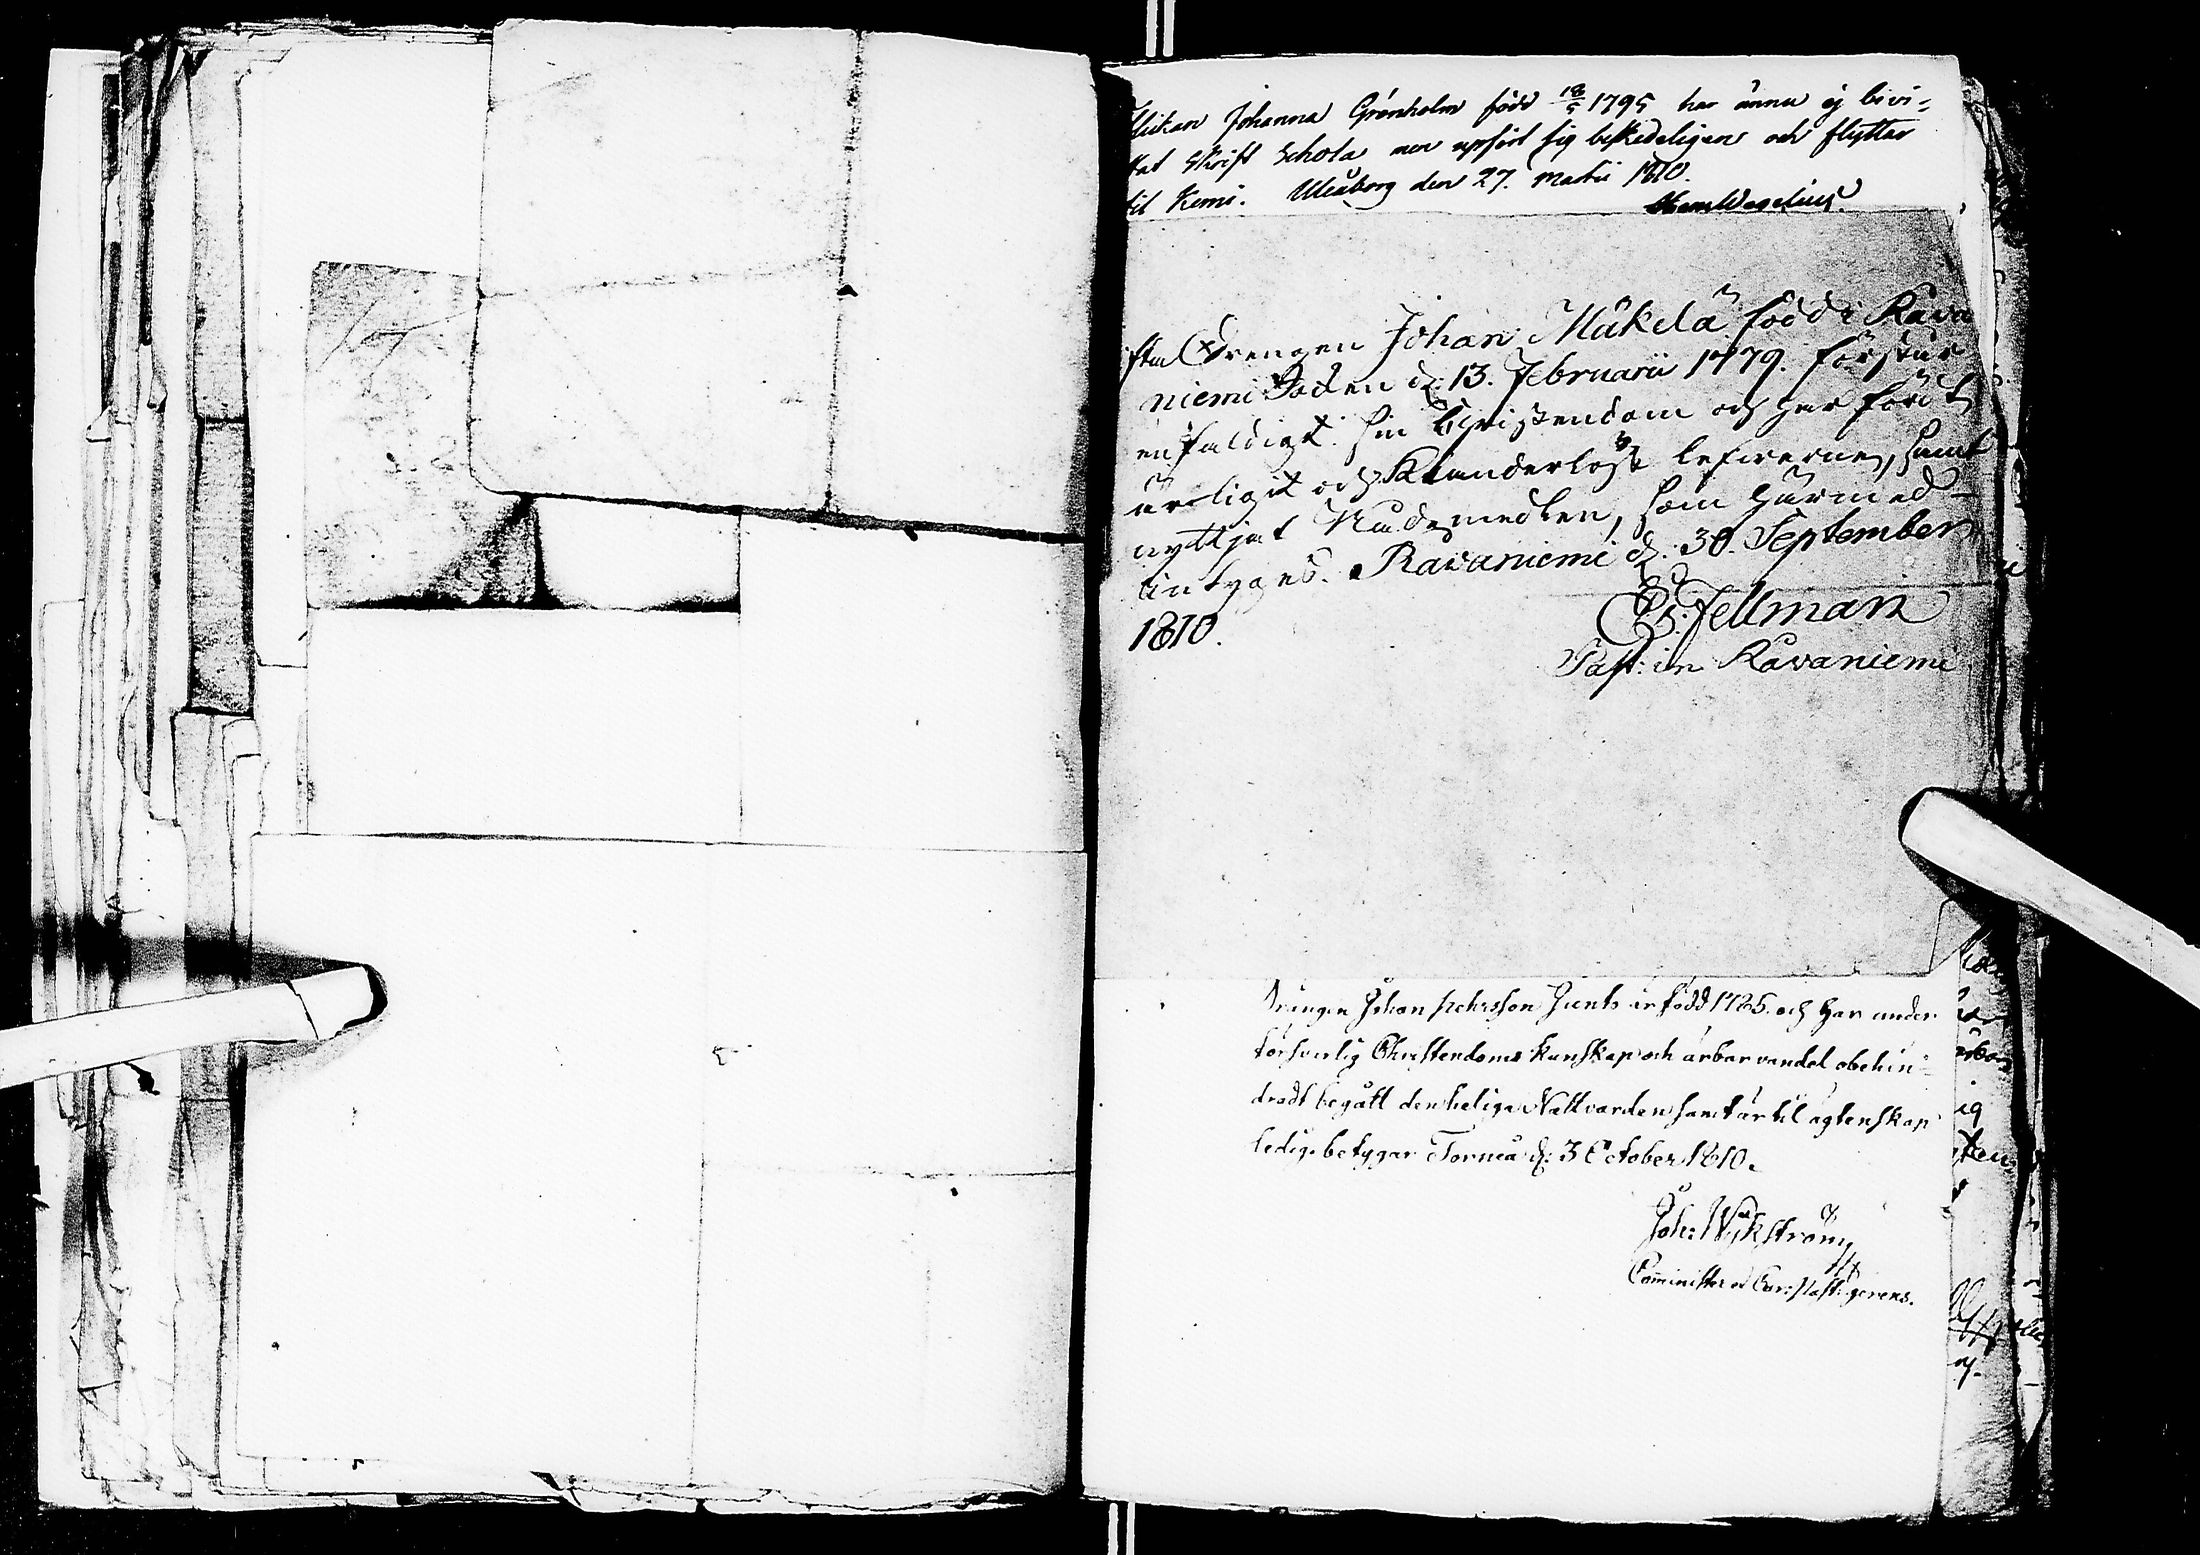 Flickan Johanna Grönholm född 18/5 1795 har ännu ej bivi-
stat Skrift Schola men upfört sig beskedeligen och flyttar
til Kemi. Uleåborg den 27. Martii 1810.
Wegelius.
Drengen Johan Mäkelä född i Råva
niemi Socken d. 13. Februarii 1779. förstår
enfaldigt sin Christendom och har fördt
ärligit och Klanderlöst lefverne, samt
nyttjat Nådemedlen, som härmed
intygas. Råvaniemi d. 30. September
1810.
Es. Fellman
Past: in Råvaniemi
Drängen Johan Pehrsson Junts är född 1785. och har under
försvarlig Christendoms kunskap och ärbar vandel obehin-
dradt begått den heliga Nattvarden samt är til ägtenskap
ledig, betygar Torneå d. 3 October 1810.
Joh: Wikström
Comminister et Cur: Past: gerens.